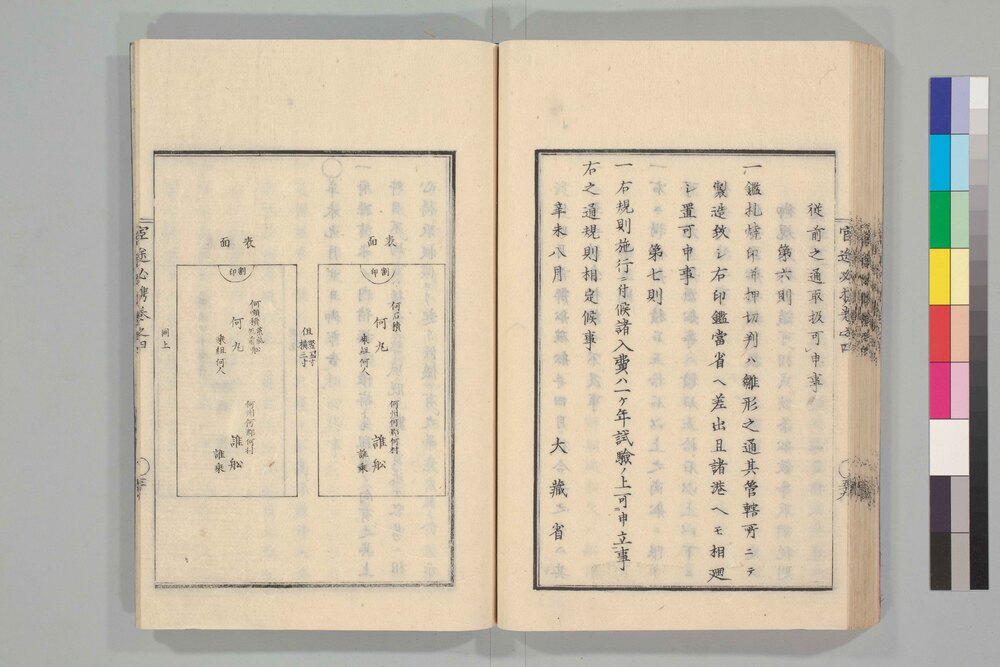 従前之通取扱可申事
第六則
一鑑札焼印并押切判ハ雛形之通其管轄所ニテ
製造致シ右印鑑當省ヘ差出且諸港ヘモ相廻
シ置可申事
第七則
一右規則施行ニ付候諸入費ハ一ケ年試驗ノ上可申立事
右之通規則相定候事
辛未八月
大藏省
官途必携巻之四
表面
割印
何石積
何丸
乗組何人
何州何郡何村
誰舩
誰乗
但
竪五寸
横三寸
表面
割印
何丸
乗組何人
何州何郡何村
誰舩
誰乗
同上
官途必携巻之四